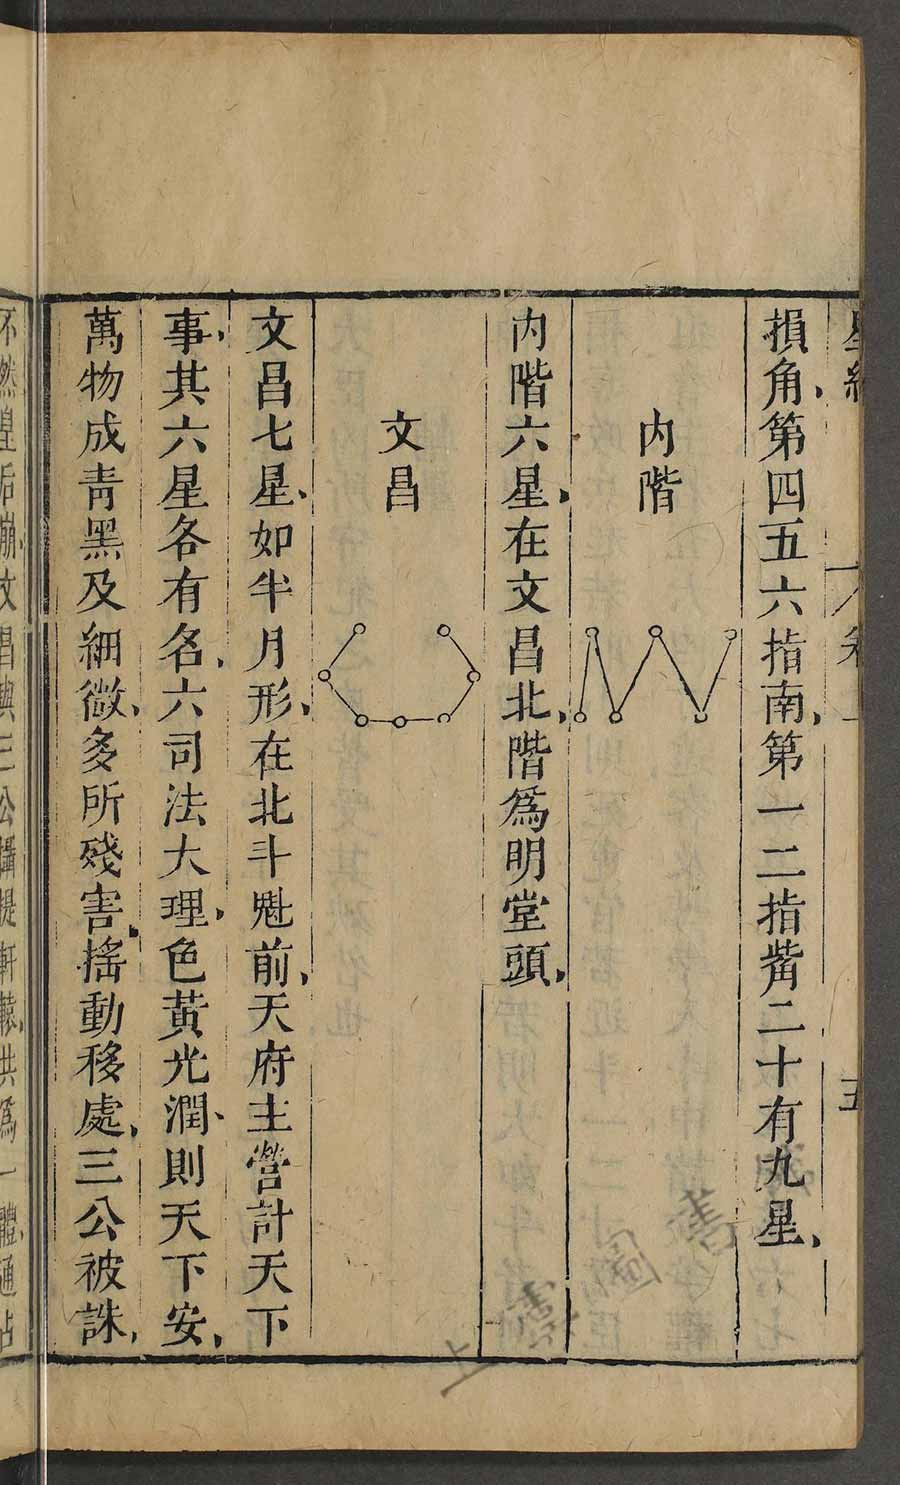 星經
卷
五
損角第四五六指南第一二指觜二十有九星
內階
內階六星在文昌北階為明堂頭
文昌
文昌七星如半月形在北斗魁前天府主營計天下
事其六星各有名六司法大理色黃光潤則天下安
萬物成青黑及細微多所殘害搖動移處三公被誅
不然皇后崩文昌與三公攝提軒轅共為一體通占